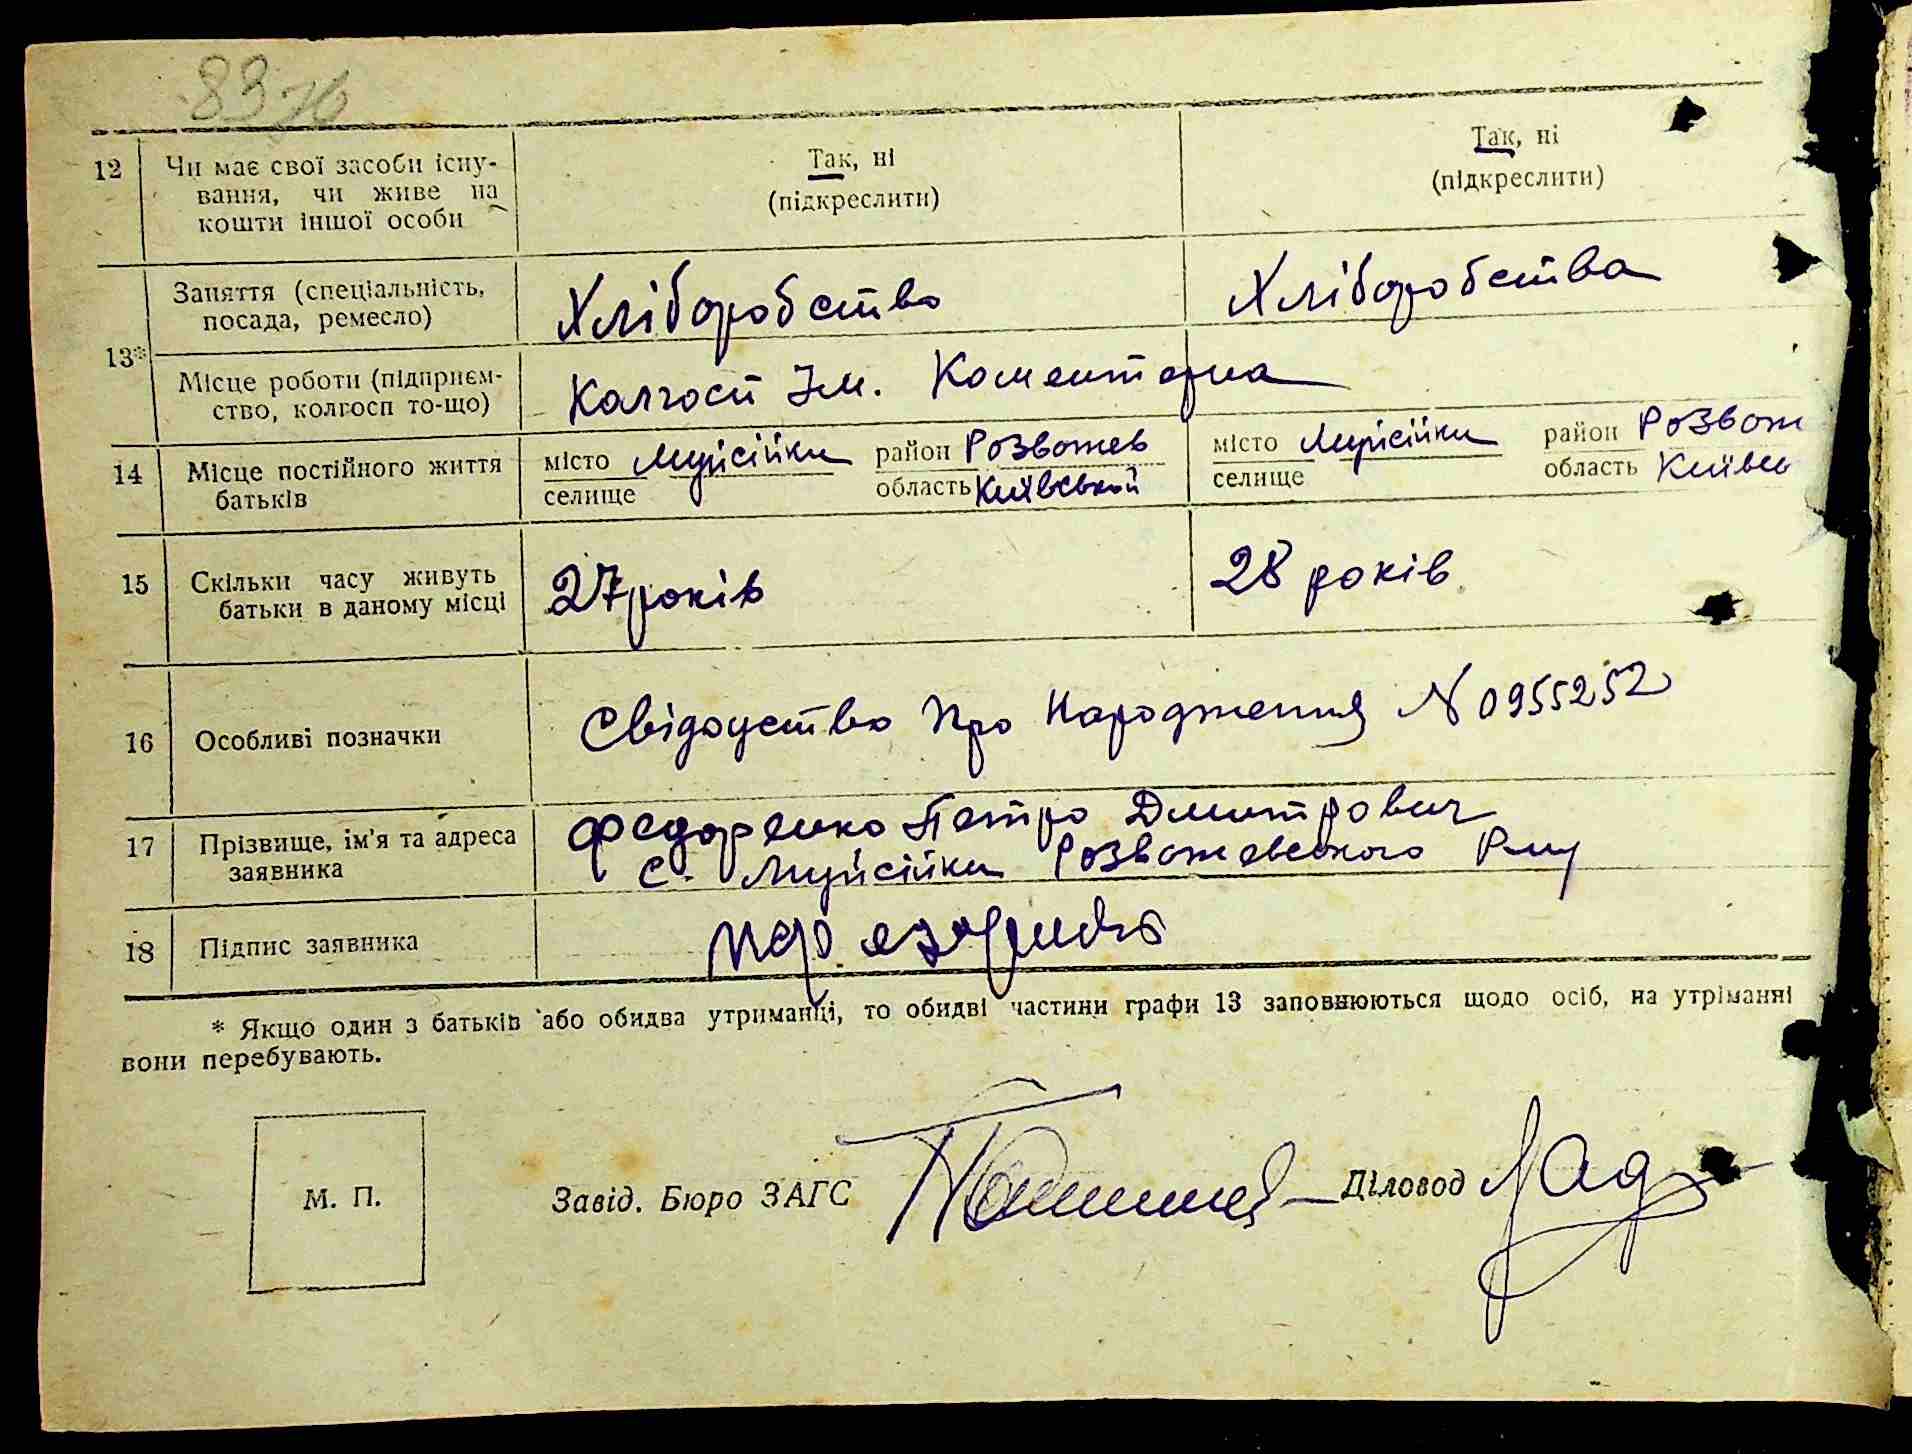 83
12 Чи має свої засоби існу- Так, ні Так, ні
вання, чи живе на (підкреслити) (підкреслити)
кошти іншої особи
13* Заняття (спеціальність, Хліборобство Хліборобства
посада, ремесло)
Місце роботи (підприєм- Колгосп Ім. Коментерна
ство, колгосп то-що)
14 Місце постійного життя місто Мусійки район Розважев місто Мусійки район Розваж
батьків селище область Київської селище область Київсь
15 Скільки часу живуть 27 років 28 років
батьки в даному місці
16 Особливі позначки Свідоцтво Про Народження N 0955252
17 Прізвище, ім'я та адреса Федоренко Петро Дмитрович
заявника с. Мусійки Розважевського Р-ну
18 Підпис заявника
* Якщо один з батьків або обидва утриманці, то обидві частини графи 13 заповнюються щодо осіб, на утріманні
вони перебувають.
М. П. Завід. Бюро ЗАГС Діловод